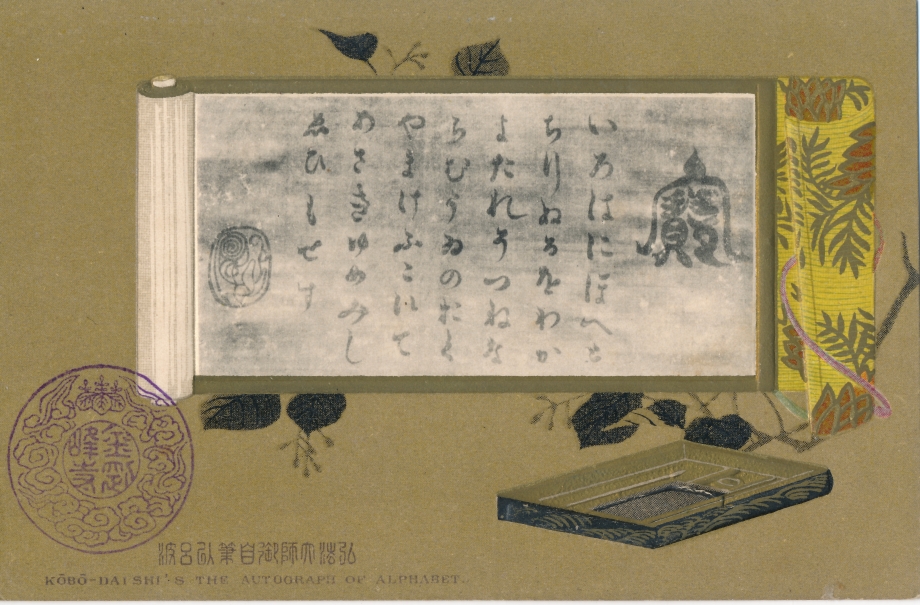 寶
いろはにほへと
ちりぬるをわか
よたれそつねな
らむうゐのおく
やまけふこえて
あさきゆめみし
ゑひもせす
金剛
峰寺
弘法大師御自筆以呂波
KŌBŌ-DAI SHI'S THE AUTOGRAPH OF ALPHABET.